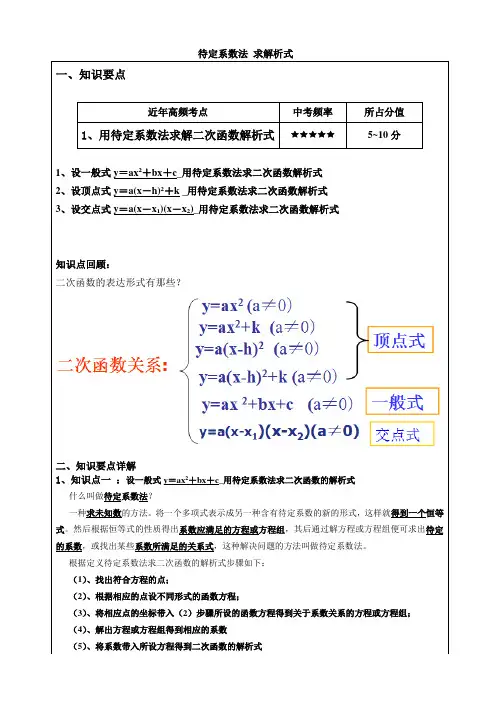 待定系数法 求解析式
一、知识要点
近年高频考点 中考频率 所占分值
1、用待定系数法求解二次函数解析式 ★★★★★ 5~10分
1、设一般式y＝ax²＋bx＋c 用待定系数法求二次函数解析式
2、设顶点式y＝a(x－h)²＋k 用待定系数法求二次函数解析式
3、设交点式y＝a(x－x₁)(x－x₂) 用待定系数法求二次函数解析式
知识点回顾：
二次函数的表达形式有那些？
二次函数关系：
y=ax² (a≠0)
y=ax²+k (a≠0)
y=a(x-h)² (a≠0)
y=a(x-h)²+k (a≠0)
顶点式
y=ax ²+bx+c (a≠0)
一般式
y=a(x-x₁)(x-x₂)(a≠0)
交点式
二、知识要点详解
1、知识点一 ：设一般式y＝ax²＋bx＋c 用待定系数法求二次函数的解析式
什么叫做待定系数法？
一种求未知数的方法。将一个多项式表示成另一种含有待定系数的新的形式，这样就得到一个恒等
式。然后根据恒等式的性质得出系数应满足的方程或方程组，其后通过解方程或方程组便可求出待定
的系数，或找出某些系数所满足的关系式，这种解决问题的方法叫做待定系数法。
根据定义待定系数法求二次函数的解析式步骤如下：
（1）、找出符合方程的点；
（2）、根据相应的点设不同形式的函数方程；
（3）、将相应点的坐标带入（2）步骤所设的函数方程得到关于系数关系的方程或方程组；
（4）、解出方程或方程组得到相应的系数
（5）、将系数带入所设方程得到二次函数的解析式